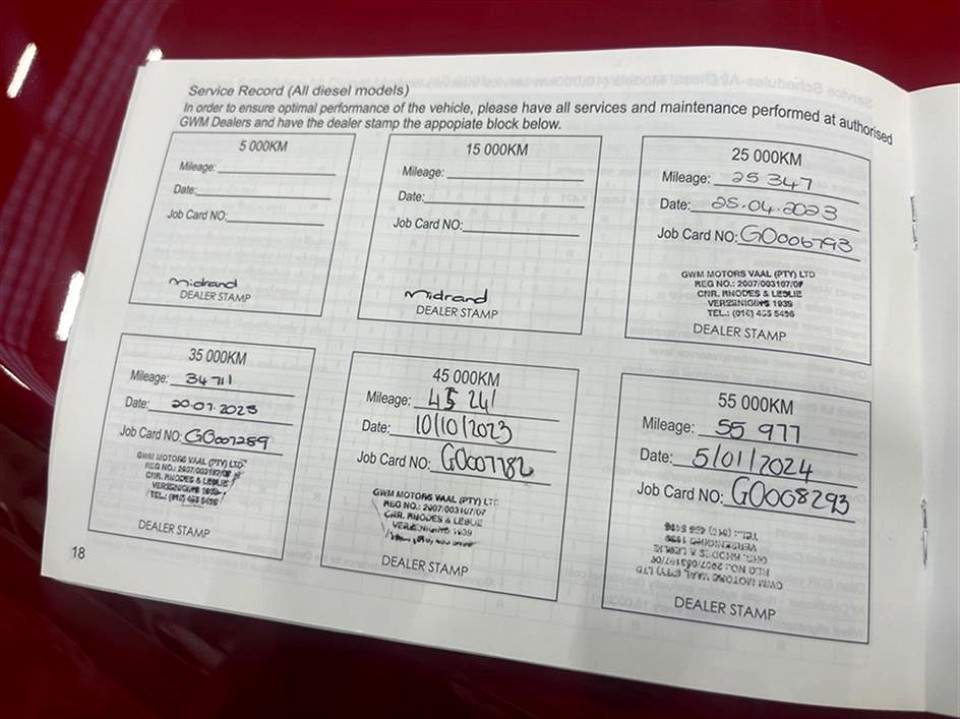 Service Record (All diesel models)
In order to ensure optimal performance of the vehicle, please have all services and maintenance performed at authorised
GWM Dealers and have the dealer stamp the appopiate block below.
5 000KM
Mileage:
Date:
Job Card NO:
Midrand
DEALER STAMP
15 000KM
Mileage:
Date:
Job Card NO:
Midrand
DEALER STAMP
25 000KM
Mileage: 25 347
Date: 25.04.2023
Job Card NO: GO006793
GWM MOTORS VAAL (PTY) LTD
REG NO.: 2007/003107/07
CNR. RHODES & LESLIE
VEREENIGING 1939
TEL.: (016) 455 5496
DEALER STAMP
35 000KM
Mileage: 34 711
Date: 20.07.2023
Job Card NO: GO007289
GWM MOTORS VAAL (PTY) LTD
REG NO.: 2007/003107/07
CNR. RHODES & LESLIE
VEREENIGING 1939
TEL.: (016) 455 5496
DEALER STAMP
45 000KM
Mileage: 45 241
Date: 10/10/2023
Job Card NO: GO007782
GWM MOTORS VAAL (PTY) LTD
REG NO.: 2007/003107/07
CNR. RHODES & LESLIE
VEREENIGING 1939
DEALER STAMP
55 000KM
Mileage: 55 977
Date: 5/01/2024
Job Card NO: GO008293
GWM MOTORS VAAL (PTY) LTD
REG NO.: 2007/003107/07
CNR. RHODES & LESLIE
VEREENIGING 1939
TEL.: (016) 455 5496
DEALER STAMP
18